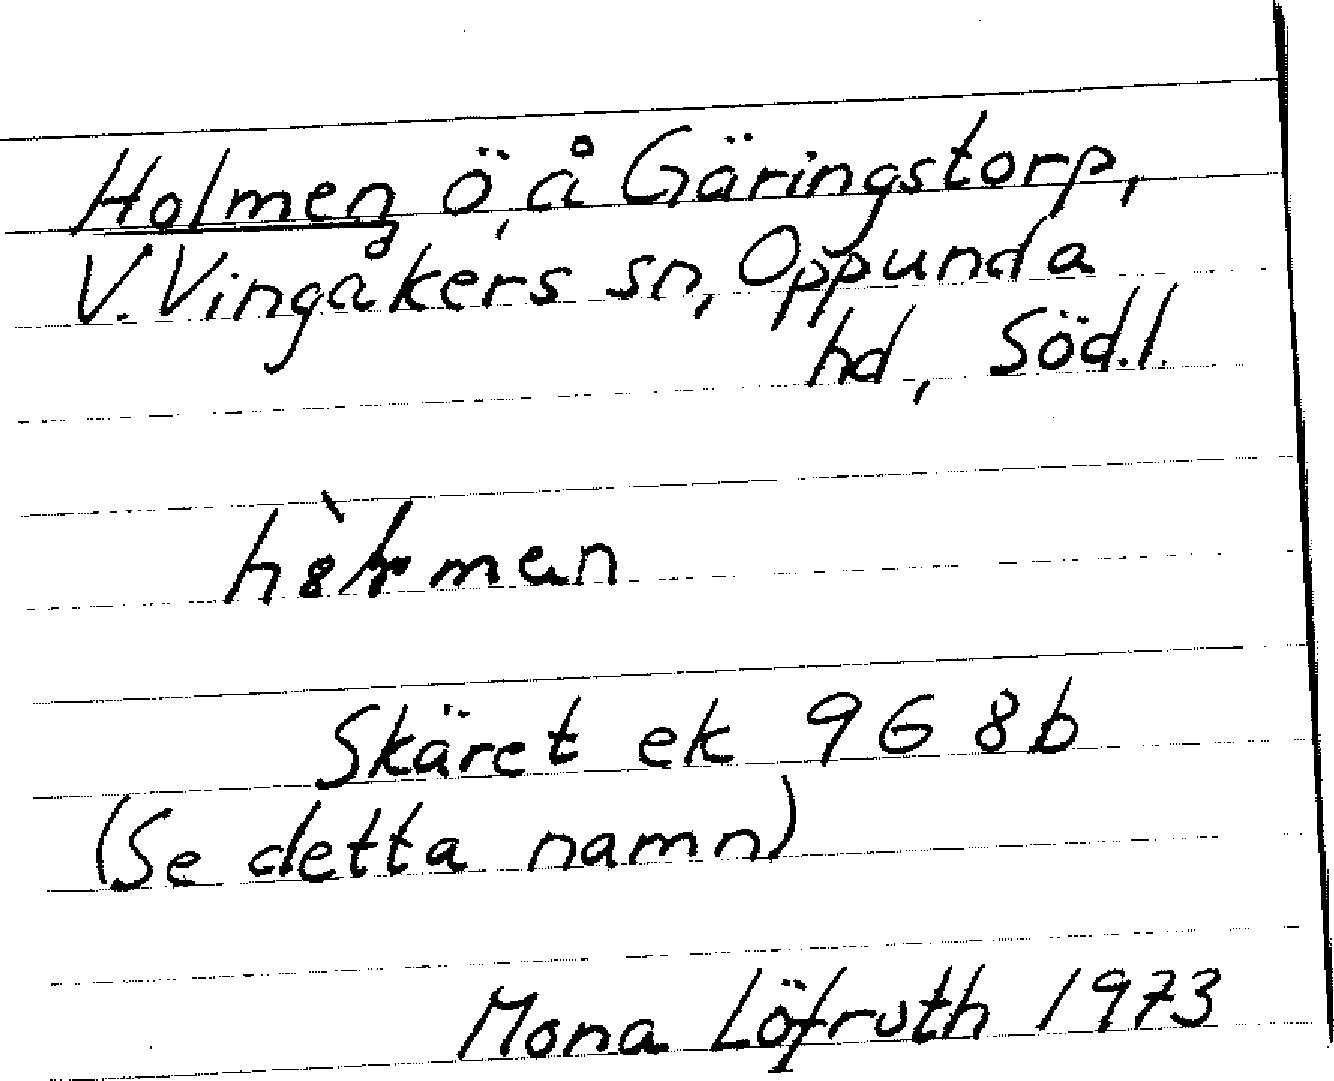 Holmen, ö, å Gäringstorp,
V. Vingåkers sn, Oppunda
hd, Söd.l.
Skäret ek 9G 8b
(Se detta namn)
Mona Löfruth 1973